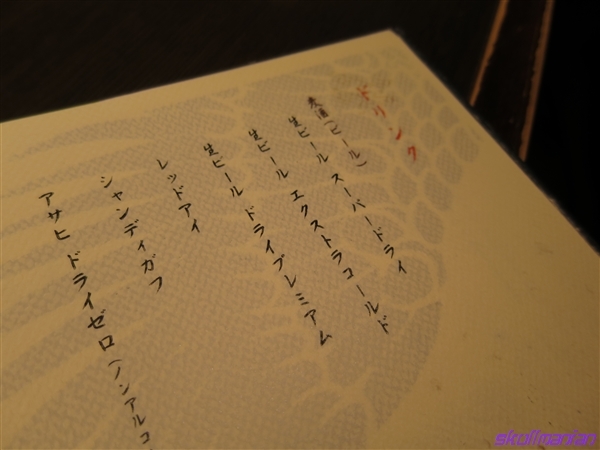 ドリンク
麦酒(ビール)
生ビール スーパードライ
生ビール エクストラコールド
生ビール ドライプレミアム
レッドアイ
シャンディガフ
アサヒ ドライゼロ(ノンアルコ
skuffmanian